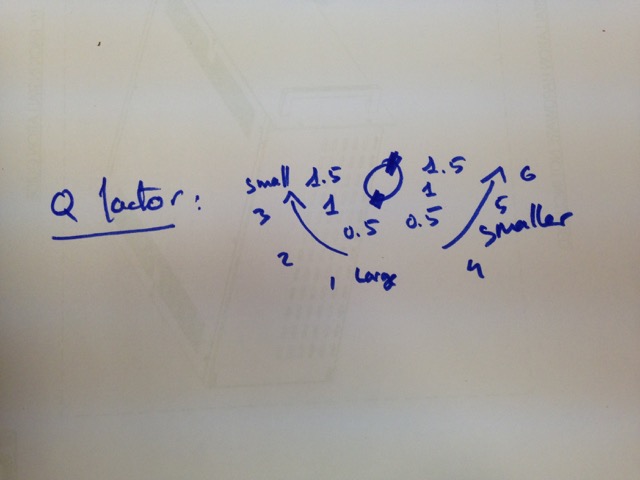 Q factor:
small 1.5 1.5 6
3 1 1 5
0.5 0.5 smaller
2 4
1 Large